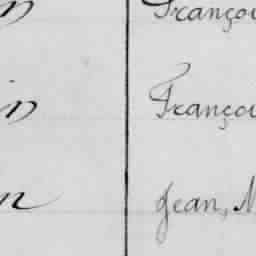 in Françoi
in Françoi
n Jean, M